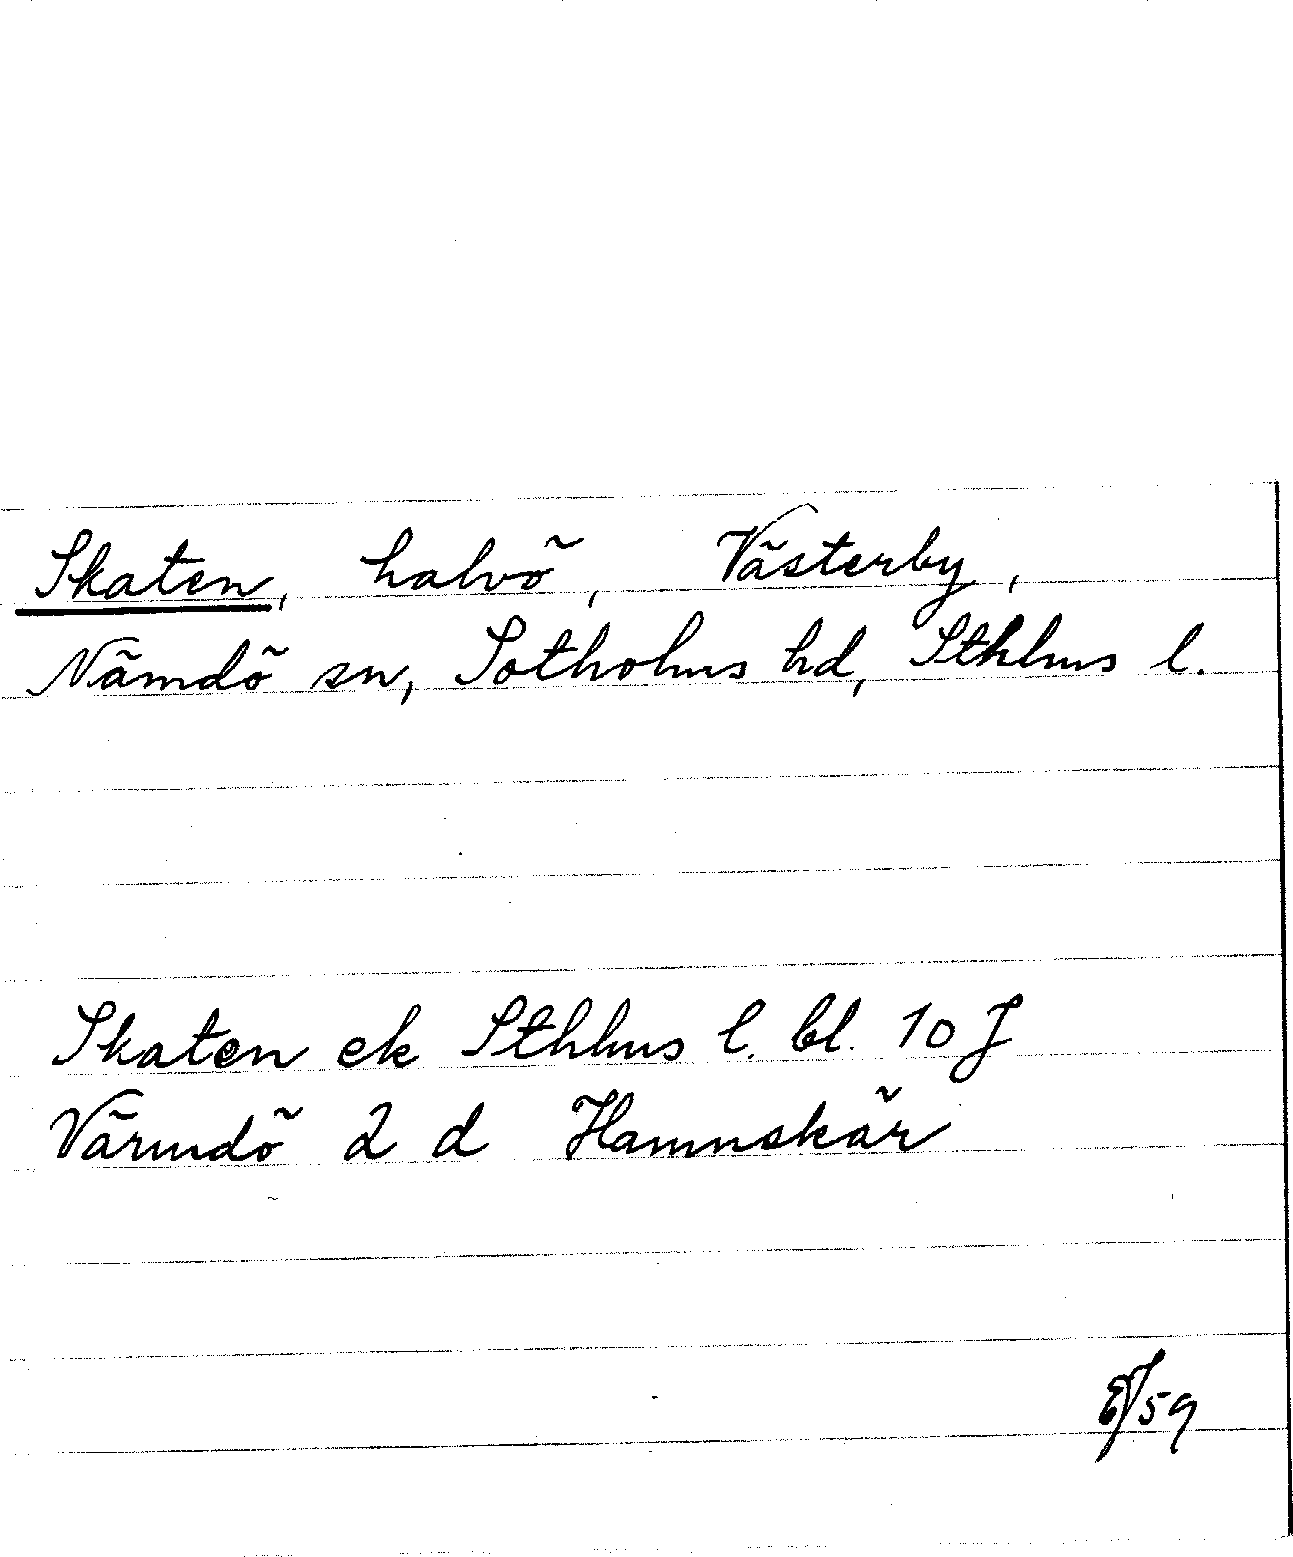 Skaten, halvö, Västerby,
Nämdö sn, Sotholms hd, Sthlms l.
Skaten ek Sthlms l. bl. 10 J
Värmdö 2 d Hamnskär
59